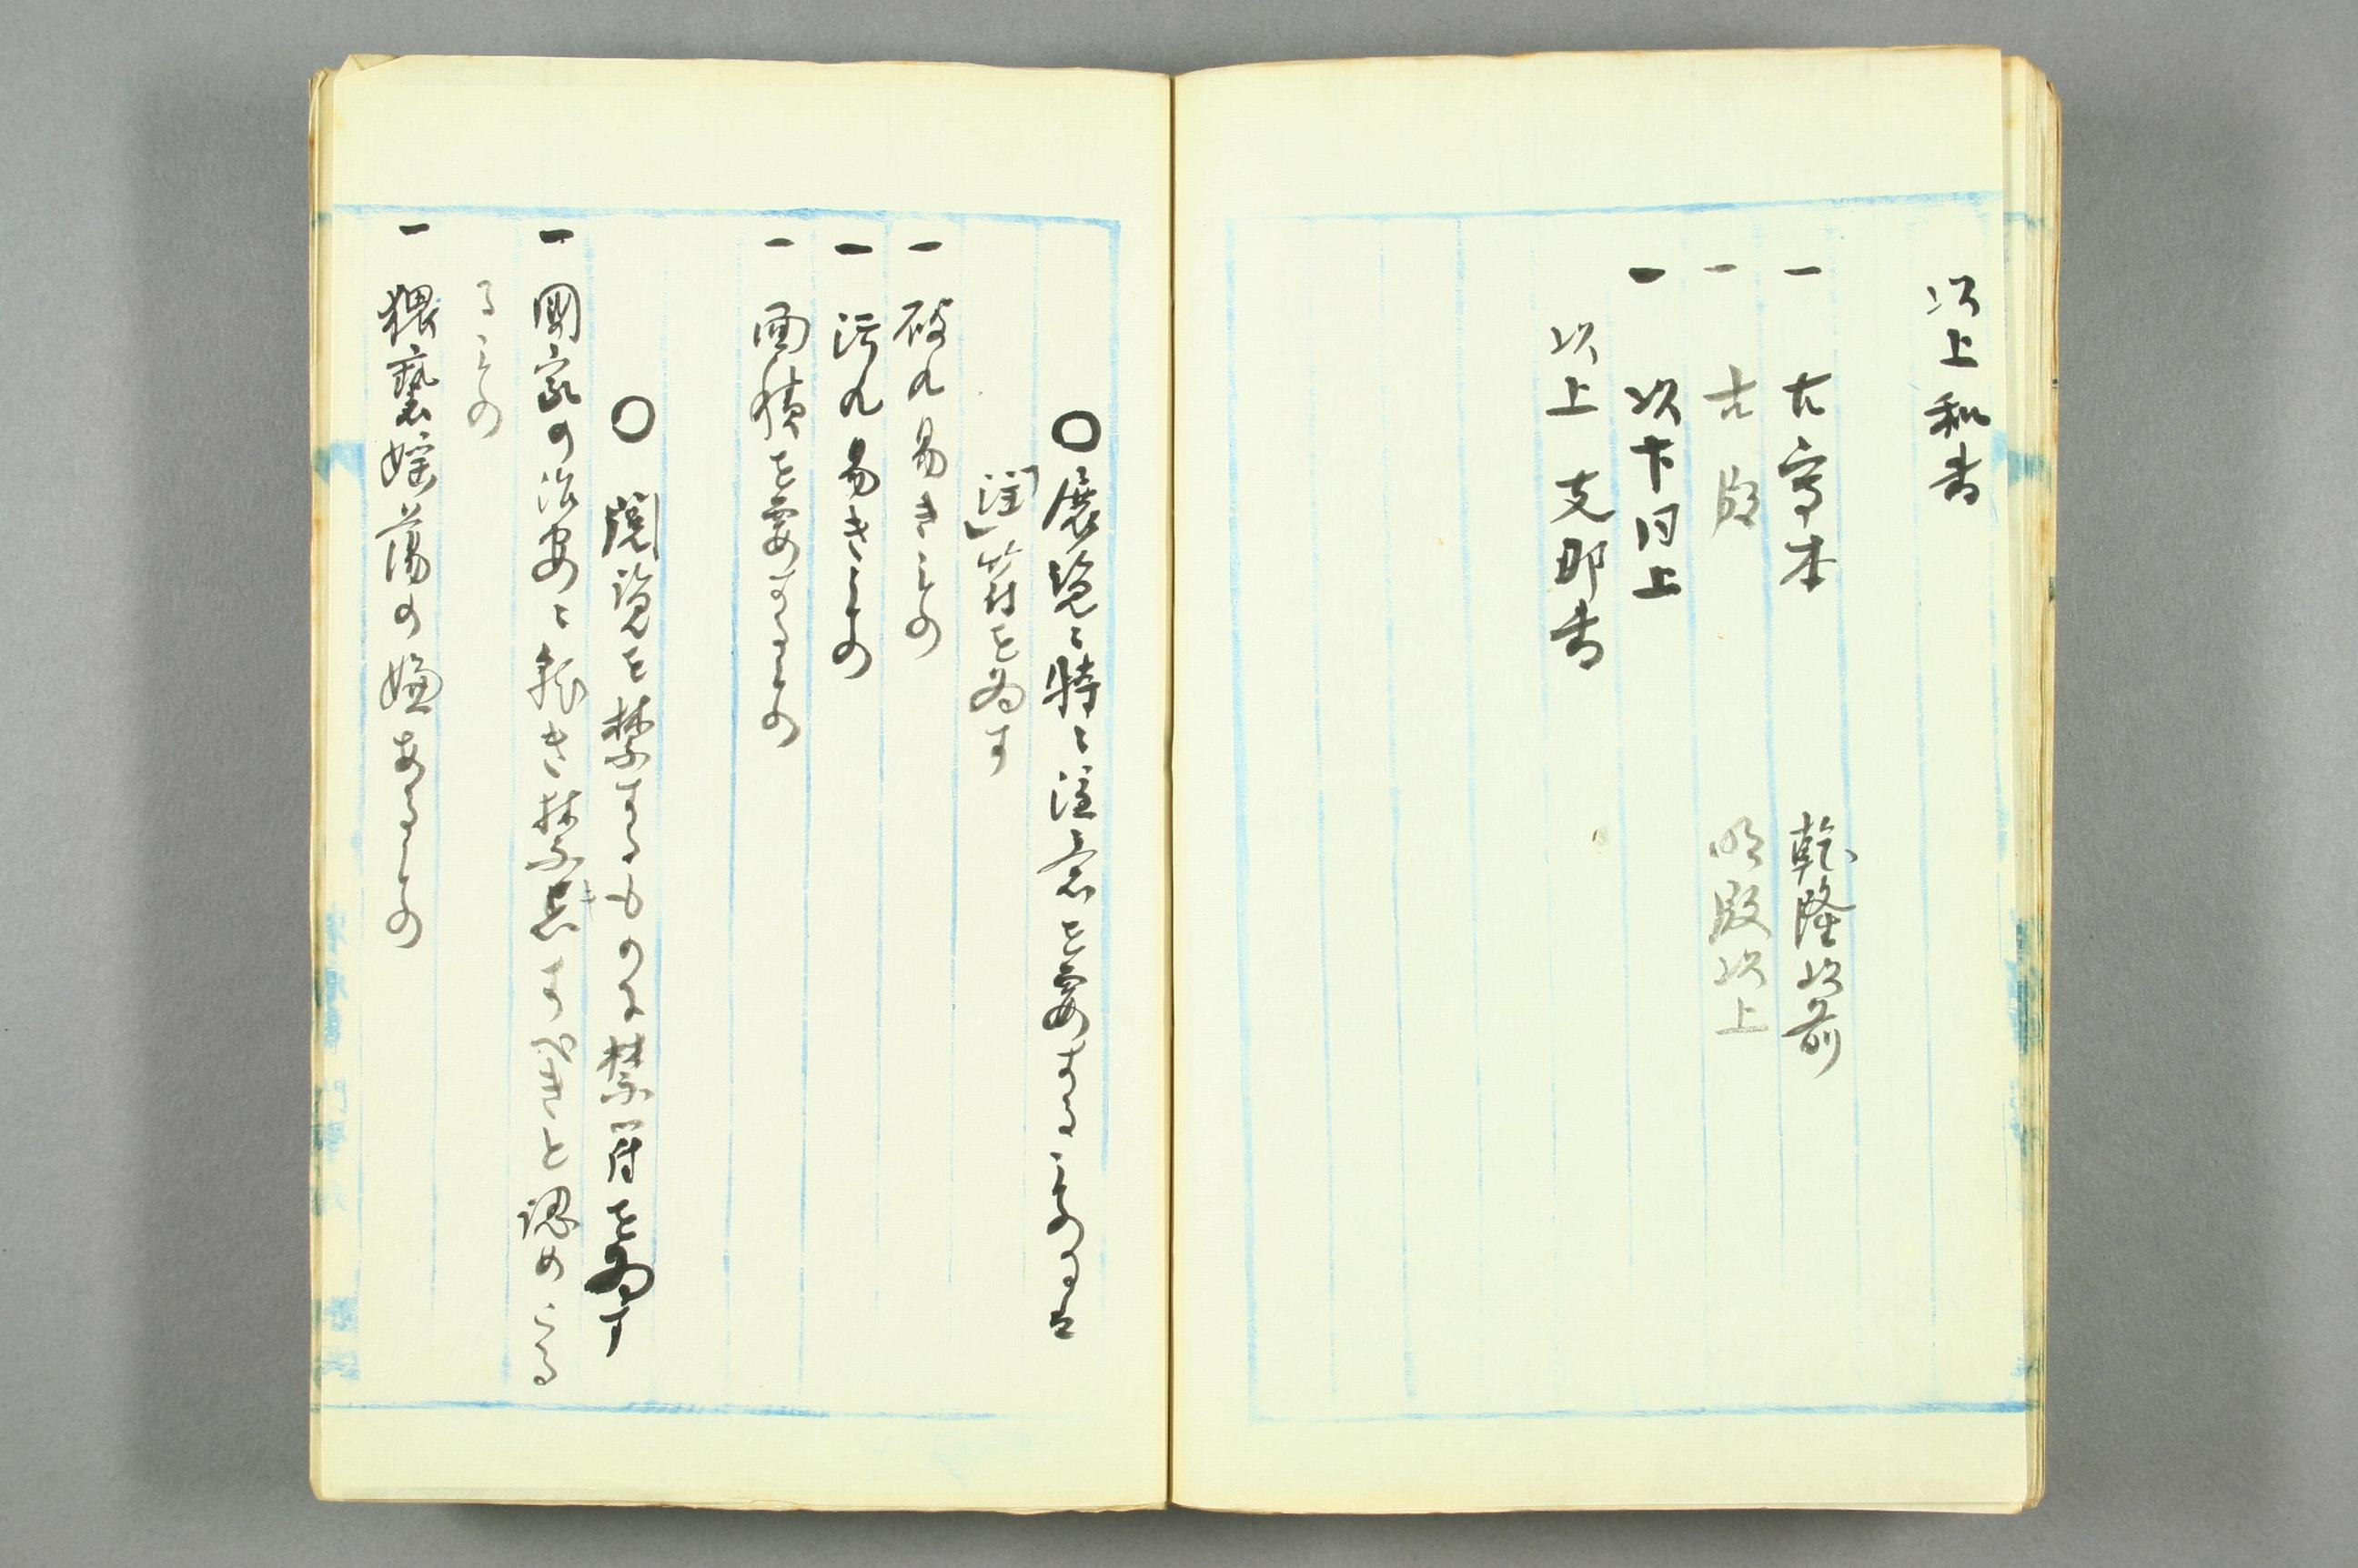 以上和書
一 古寫本 乾隆以前
一 古版 明版以上
一 以下同上
以上支那書
〇展覧に特に注意を要するものは
「注」符を為す
一 破れ易きもの
一 汚れ易きもの
一 面積を要するもの
〇 閲覧を禁ずるものは禁符を為す
一 國家の治安に就き禁忌すべきと認めら
るもの
一 猥褻婬蕩の嫌あるもの